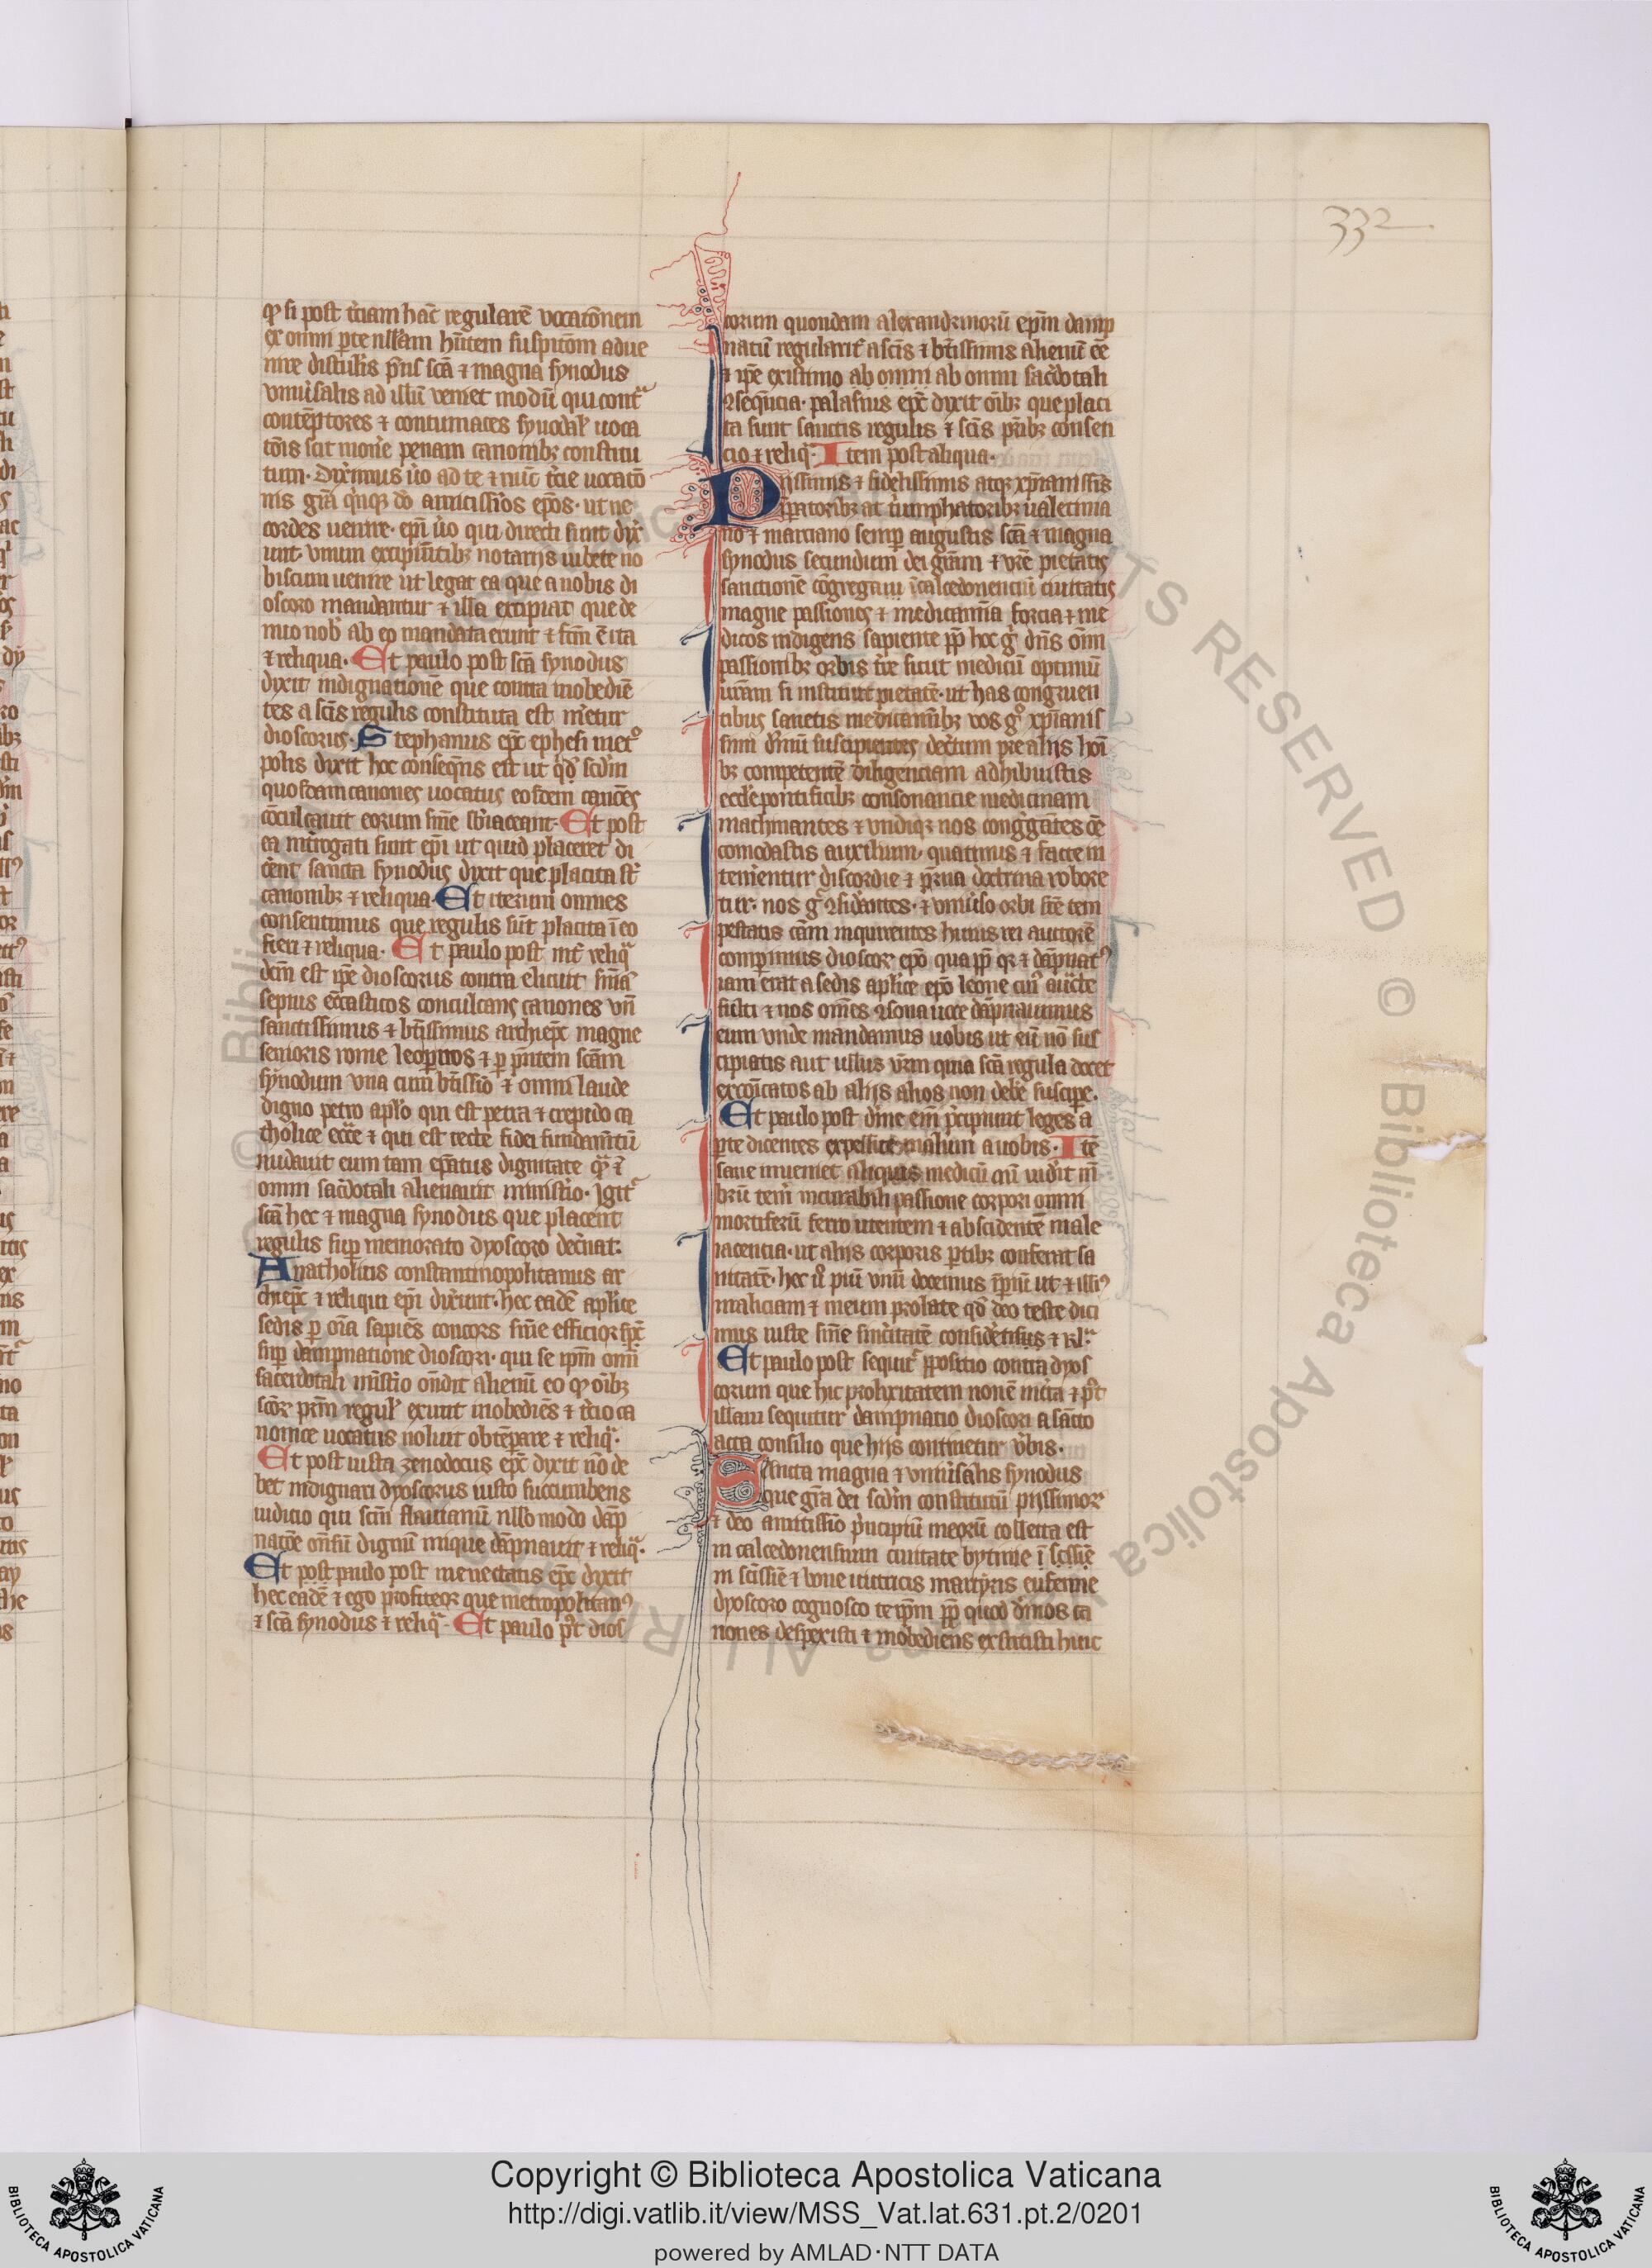 332
ꝙ si post t̾ciam hac̄ regularē vocatōnem
ex omni ꝑte nll̄am hn̄tem suspitōm adue
nire distulis p̄ns sc̄a ⁊ magna synodus
vniu̾salis ad illū veniet modū qui cont̾
contēptores ⁊ contumaces synodal̾ uoca
tōis scit mou̾e penam canonibꝫ constitu
tum. Dix̾imus u̾o ad te ⁊ nūc t̾cie uocatō
nis gr̄a
cordes uenire. ep̄i u̾o qui directi sunt dix̾
unt vnum excipiētibꝫ notarijs iubete no
biscum uenire ut legat ea que a nobis di
oscoro mandantur ⁊ illa excipiat que de
nuo nob̾ ab eo mandata erunt ⁊ fc̄m ē ita
⁊ reliqua. Et paulo post sc̄a synodus
dixit indignationē que contra inobediē
tes a sc̄is regulis constituta est m̾etur
dioscorus. Stephanus ep̄c ephesi met̾o
polis dixit hoc conseqn̄s est ut qd̾ scd̄m
quosdam canones uocatus eosdem canōes
cōculcauit eorum sn̄ie sb̾iaceant. Et post
ea int̾rogati sunt ep̄i ut quid placeret di
cēnt sancta synodus dyxit que placita st̄
canonibꝫ ⁊ reliqua. Et iterum omnes
consentimus que regulis sūt placita ī eo
fieri ⁊ reliqua. Et paulo post int̾ reliq̾
dc̄m est ip̄e dioscorus contra elicuit sn̄ia
sepius ecc̄asticos conculcans canones vn̄
sanctissimus ⁊ bt̄issimus archiep̄c magne
senioris rome leo ꝑ nos ⁊ ꝑ p̄ntem sc̄am
synodum vna cum bt̄issīo ⁊ omni laude
digno petro apl̄o qui est petra ⁊ crepido ca
tholice ecc̄e ⁊ qui est recte fidei fundam̄tū
nudauit eum tam ep̄atus dignitate
omni sac̾dotali alienauit minist̾io. Igit̾
sc̄a hec ⁊ magna synodus que placent
regulis suꝑ memorato dyoscoro dec̾nat.
Anatholius constantinopolitanus ar
chiep̄c ⁊ reliqui ep̄i dix̾unt. hec eadē apl̄ice
sedis ꝑ oīa sapiēs concors sn̄ie efficior
suꝑ dampnatione dioscori. qui se ip̄m omī
sacerdotali mīst̾io on̄dit alienū eo ꝙ oībꝫ
sc̄oꝝ pr̄m regul̾ extitit inobediēs ⁊ t̾cio ca
nonice uocatus noluit obtēpare ⁊ reliq̾.
Et post iusta zenodocus ep̄c dyxit nō de
bet indignari dyoscorus iusto succumbens
iudicio qui sc̄m flauianū nll̄o modo dāp
natōe dignū inique dāpnauit ⁊ reliq̾.
Et post paulo post menectatis ep̄c dyxit
hec eadē ⁊ ego profiteor que metropolitan̾
⁊ sc̄a synodus ⁊ reliq̾. Et paulo p̾t dios
corum quondam alexandrinorū ep̄m damp
natū regularit̾ a sc̄is ⁊ bt̄issimis alienū ēē
⁊ ip̄e existimo ab omni ab omni sac̾dotali
ꝯseq̄ncia. palasius ep̄c dyxit oībꝫ que placi
ta sunt sanctis regulis ⁊ sc̄is pr̄ibꝫ conseti
cio ⁊ reliq̾. Item post aliqua.
Pijssimis ⁊ fidelissimis atqꝫ xp̄ianissīs
īꝑatoribꝫ ac t̾umphatoribꝫ ualentinia
no ⁊ marciano semꝑ augustis sc̄a ⁊ magna
synodus secundum dei gr̄am ⁊ vr̄e pietatis
sanctionē cōgregata ī calcedonenciū ciuitatis
magne passiones ⁊ medicamīa forcia ⁊ me
dicos indigens sapiente pp̄ hoc g̾ dn̄s om̄
passionibꝫ orbis t̾re sicut medicū optimū
ur̄am si instituit pietatē. ut has congruen
tibus sanctis medicamībꝫ vos g̾o xp̄ianis
simi d̾inū suscipientes dec̾tum pre alijs hoī
bꝫ competentē diligenciam adhibuistis
eccl̾e pontificibꝫ consonancie medicinam
machinantes ⁊ vndiqꝫ nos cong̾gātes ēē
comodastis auxilium. quatinus ⁊ facte in
tem̾entur discordie ⁊ pr̾ua doctrina robore
tur. nos g̾ ꝯsid̾antes. ⁊ vniu̾so orbi ste tem
pestatis cām inquirentes huius rei auctorē
comꝑimus dioscor̾ ep̄o qua pp̄ qꝛ ⁊ dāpnat̾
iam erat a sedis apl̄ice ep̄o leone cui̾ auc̄te
fulti ⁊ nos om̄es ꝯsona uoce dāpnauimus
eum vnde mandamus uobis ut eū nō sus
cipiatis aut ullus vr̄m quia sc̄a regula docet
excōicatos ab alijs alios non debe̾ suscipe̾.
Et paulo post d̾ine em̄ p̾cipiunt leges a
ꝑte dicentes expellite malum a uobis. Itē
sane inueniet aliquis medicū cū vid̾it mē
brū teneri incurabili passione corpori omni
mortiferū ferro utentem ⁊ abscidentē male
iacentia. ut alijs corporis ꝑtibꝫ conferat sa
nitatē. hec u̾o piū vnū docemus
maliciam ⁊ meum prolate qd̾ deo teste dici
mus iuste sn̄ie sinc̾itatē confid̾tisus ⁊ rl̾.
Et paulo post sequit̾ ꝓpositio contra dyos
corum que hic prolixitatem non ē inc̾ta ⁊ p̾t
illam sequitur dampnatio dioscori a sancto
acta consilio que hijs continetur u̾bis.
Sancta magna ⁊ vniu̾salis synodus
que gr̄a dei scd̄m constitutū pijssimoꝝ
⁊ deo amitissīo p̾ncipiū meorū collecta est
in calcedonensium ciuitate bytinie
in sc̄issīe ⁊ bone uictricis martyris eufemie
dyoscoro cognosco te ip̄m pp̄ quod d̾inos ca
nones despexisti ⁊ inobediens exstitisti huic
© Biblioteca Apostolica Vaticana ALL RIGHTS RESERVED
Copyright © Biblioteca Apostolica Vaticana
http://digi.vatlib.it/view/MSS_Vat.lat.631.pt.2/0201
powered by AMLAD·NTT DATA
BIBLIOTECA APOSTOLICA VATICANA
BIBLIOTECA APOSTOLICA VATICANA